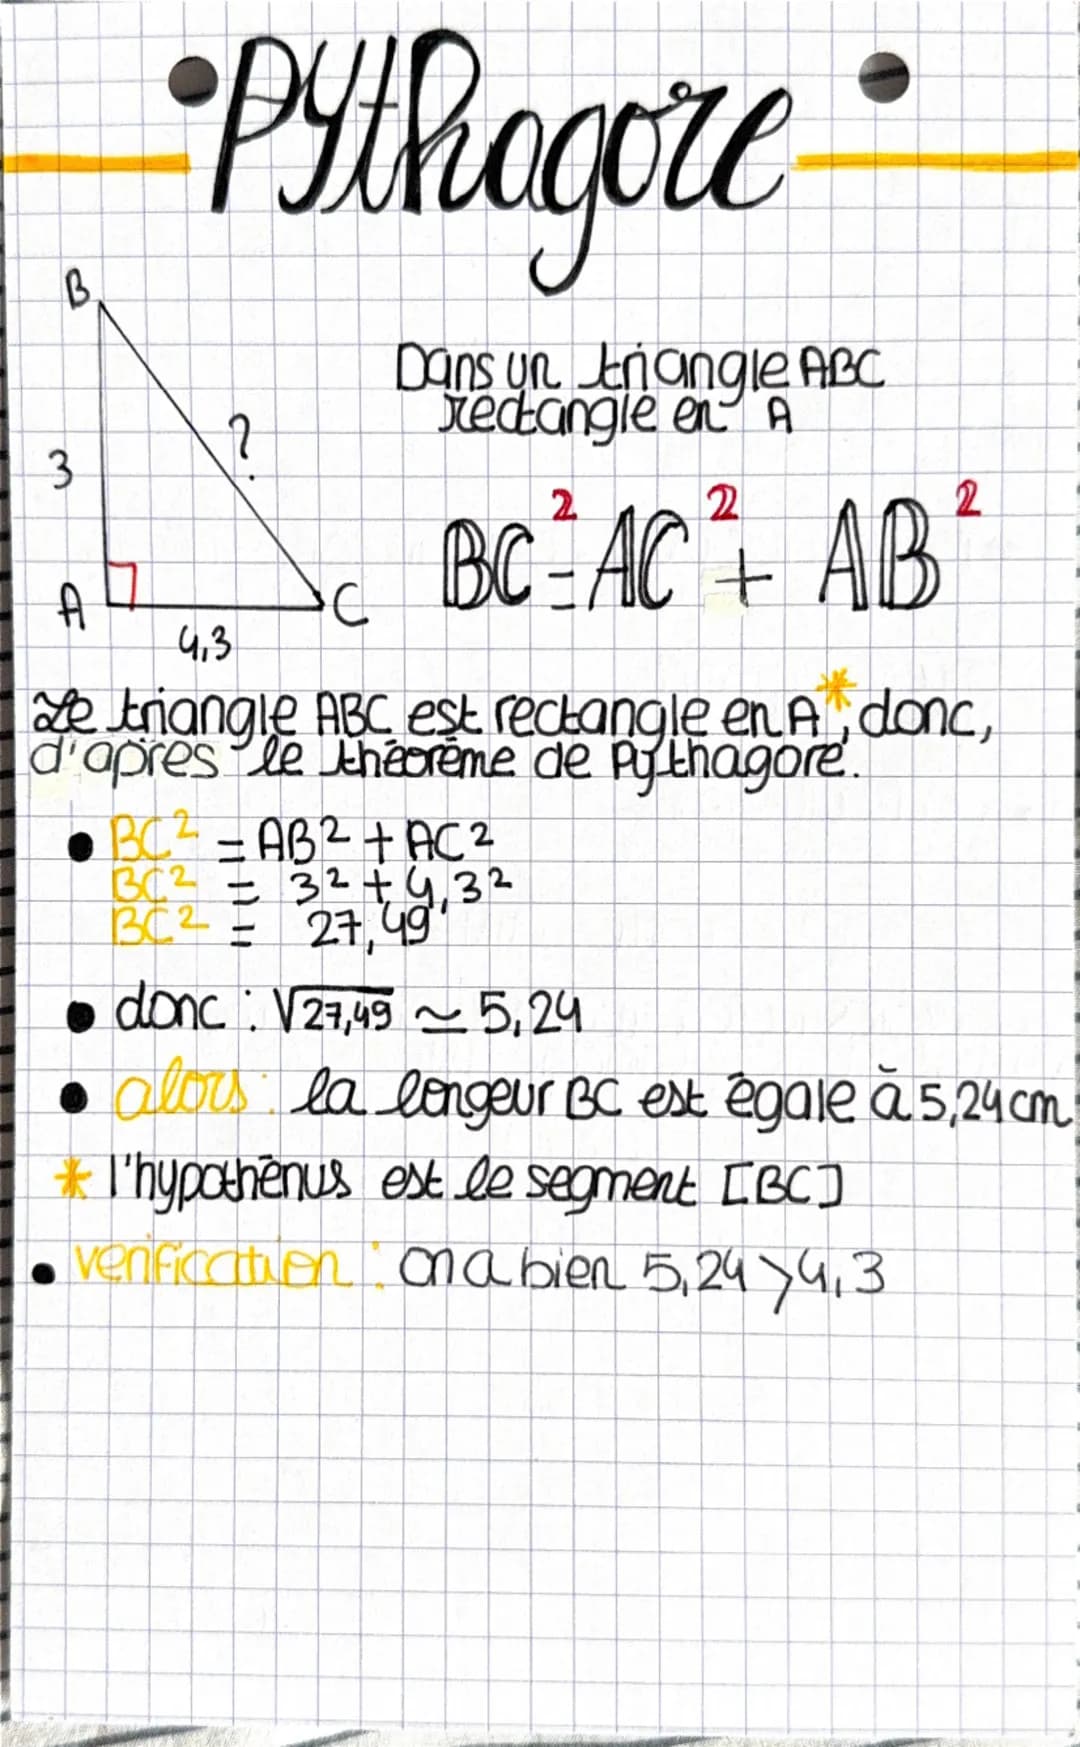 Pythagore
B
?
3
A
C
4,3
Dans un triangle ABC
rectangle en A
BC² = AC² + AB²
Le triangle ABC est rectangle en A*, donc,
d'après le théorème de Pythagore.
• BC² = AB² + AC²
BC² = 3² + 4,3²
BC² = 27,49
• donc : √27,49 ≃ 5,24
• alors : la longeur BC est égale à 5,24 cm
* l'hypothénus est le segment [BC]
• verification : on a bien 5,24 > 4,3